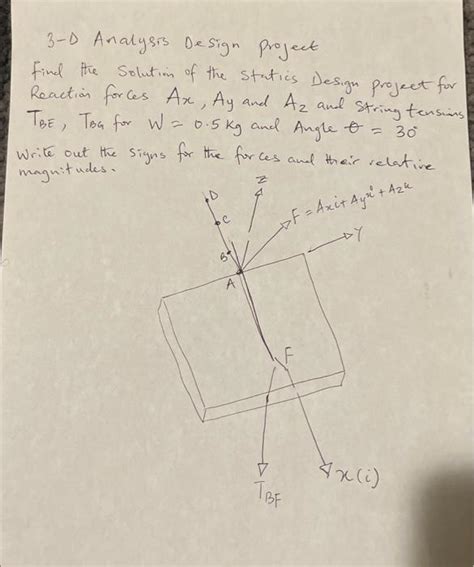 3-D Analysis Design project
Find the Solution of the Statics Design project for
Reaction forces Ax, Ay and Az and String tensions
TBE, TBG for W = 0.5 kg and Angle θ = 30°
Write out the signs for the forces and their relative
magnitudes.
Z
D
F = Axi + Ayj + Azk
C
Y
B
A
F
x(i)
TBF